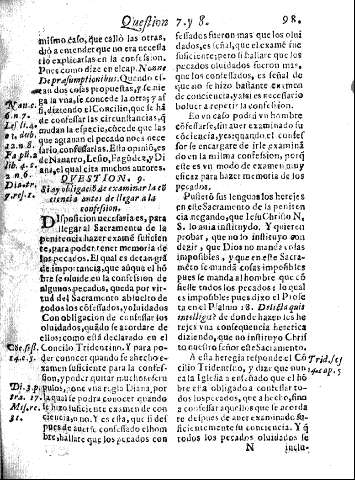 Question 7. y 8.
98.
mismo caso, que calló las otras,
dió a entender que no era necessa
rio explicarlas en la confession.
Pues como dize en el cap. Nonne
De præsumptionibus. Quando es-
tan dos cosas propuestas, y se nie
ga la vna, se concede la otra; y as
si, diziendo el Concilio, que se há
de confessar las circunstancias, q̃
mudan la especie, cõcede que las
que agrauan el pecado no es nece
sario, confessarlas. Esta opinió, es
de Nauarro, Lesio, Fagúdez, y Di
ana, el qual cita muchos autores.
QVESTION. 9.
Si ay obligació de examinar la cõ
ciencia antes de llegar a la
confession.
DIsposicion necessaria es, para
llegar al Sacramento de la
penitencia hazer examẽ suficien
te, para poder tener memoria de
los pecados. El qual es de tan grã
de importancia, que aũque el hó
bre se oluide en la confesion de
algunos pecados, queda por vir
tud del Sacramento absuelto de
todos los cõfessados, y oluidados
Con obligacion de confessar los
oluidados, quãdo se acordare de
ellos: como està declarado en el
Concilio Tridentino. Y para po-
der conocer quando se a hecho e-
xamen suficiente para la confes-
sion, y poder quitar muchos escru
pulos, pone vna regla Diana, por
la qual se podrá conocer quando
se hizo suficiente examen de con
ciencia, o no. Y es esta, que si des
pues de auerse confessado el hom
bre, hallare que los pecados con
fessados fueron mas que los olui
dados, es señal, que el examẽ fue
suficiente; pero si hallare que los
pecados oluidados fueron mas,
que los confessados, es señal de
que no se hizo bastante examen
de conciencia, y assi es necessario
boluer a repetir la confession.
En vn caso podrá vn hombre
cõfessarse, sin auer examinado su
cõciencia, y es quando el confes
sor se encargare de irle examinã
do en la misma confession, porq̃
este es vn modo de examen muy
eficaz para hazer memoria de los
pecados.
Pusieró sus lenguas los herejes
en este Sacramento de la peniten
cia negando, que Iesu Christo N,
S. lo auia instituydo. Y quieren
probar, que no lo instituyo con
dezir, que Dios no manda cosas
imposibles, y que en este Sacra-
mẽto se mandá cosas imposibles
pues se manda al hombre que cõ
fiesse todos los pecados: lo qual
es imposible pues dixo el Profe
ta en el Psalmo 18. Delicta quis
intelligit? de donde hazen los he
rejes vna consequencia heretica
diziendo, que no instituyo Chris
to nuestro señor este Sacramento.
A esta heregia responde el Cõ
cilio Tridentino, y dize que nun
ca la Iglesia a enseñado que el hõ
bre està obligado a confessar to-
dos los pecados, que a hecho, sino
a confessar aquellos que se acorda
re despues de auer examinado su-
ficientemente su conciencia. Y q̃
todos los pecados oluidados se
N
inclu-